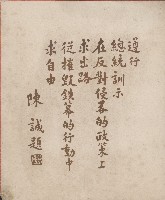 遵行
總統訓示
在反對侵略的政策上
求出路
從摧毀鐵幕的行動中
求自由
陳誠題